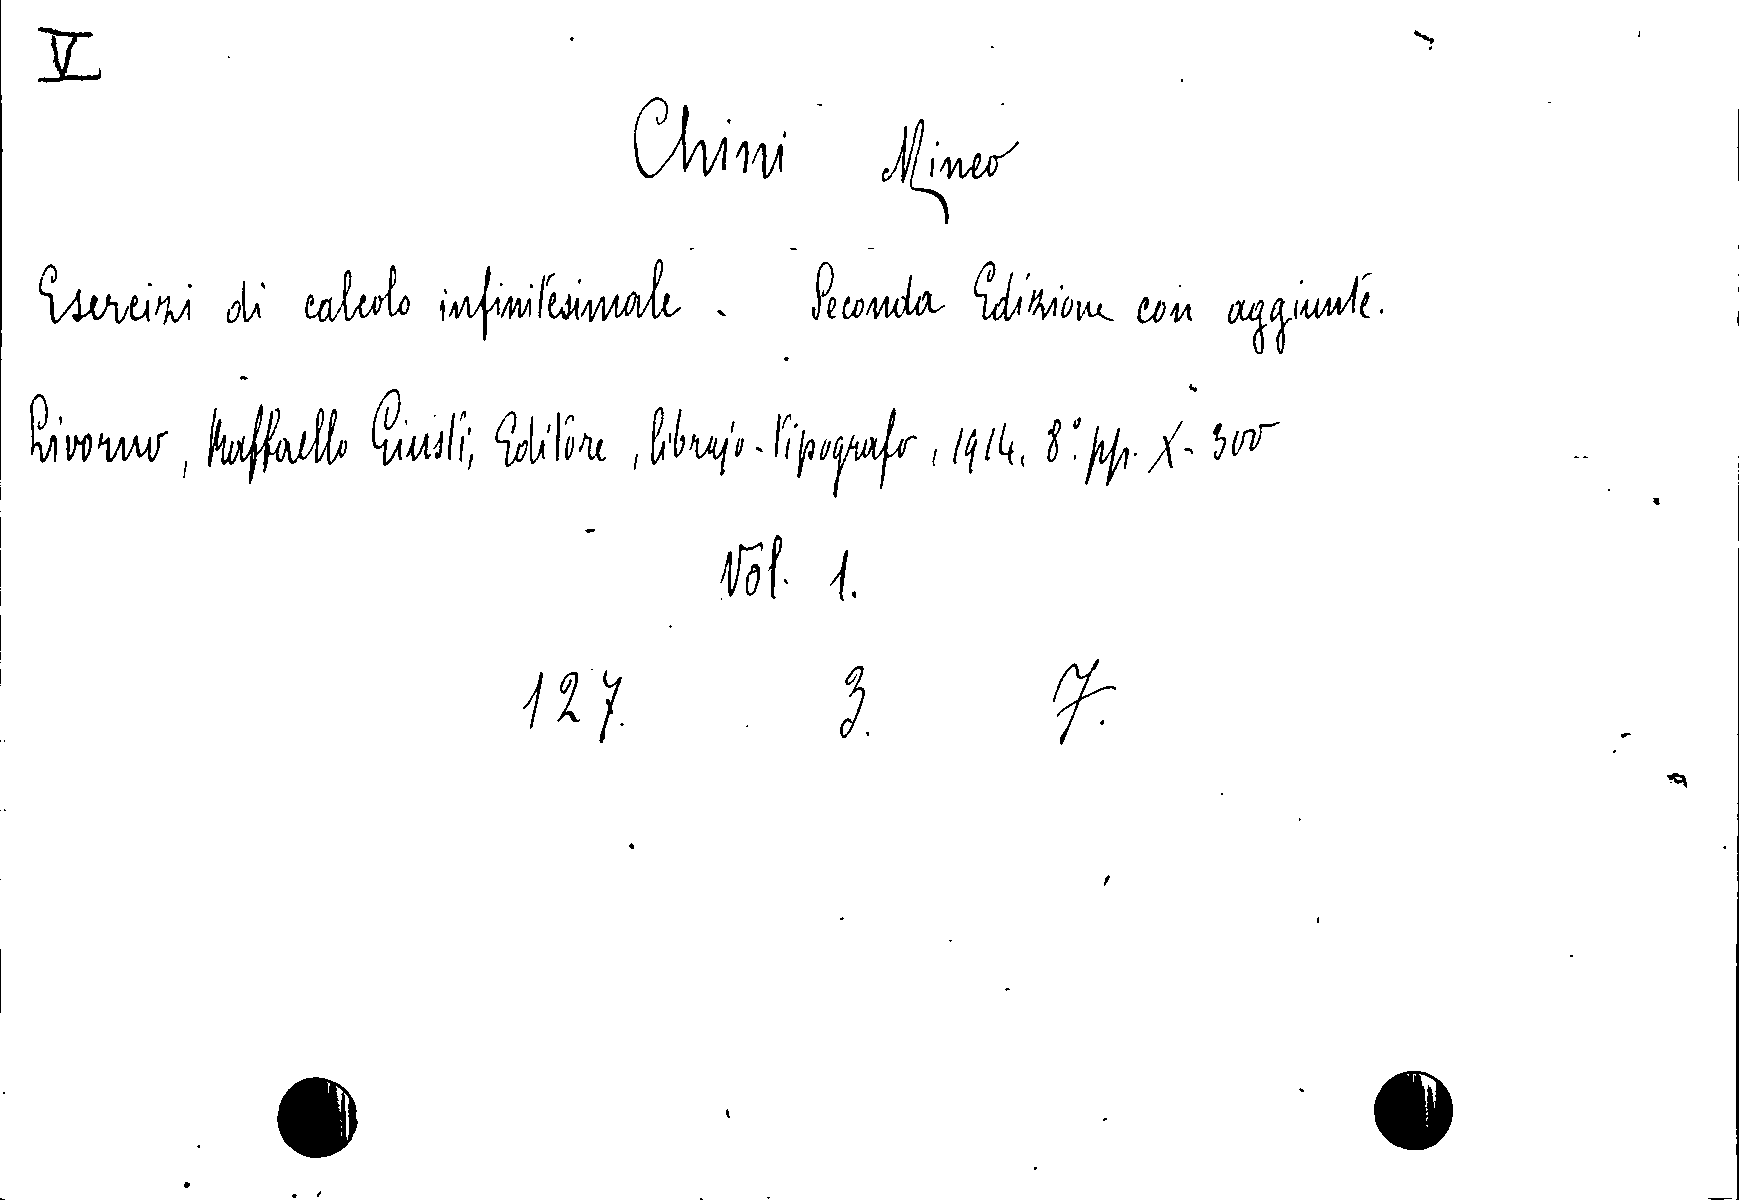 V
Chini Mineo
Esercizi di calcolo infinitesimale. Seconda Edizione con aggiunte.
Livorno, Raffaello Giusti, Editore, librajo-tipografo, 1914. 8° pp. X-300
Vol. 1.
127. 3. 7.